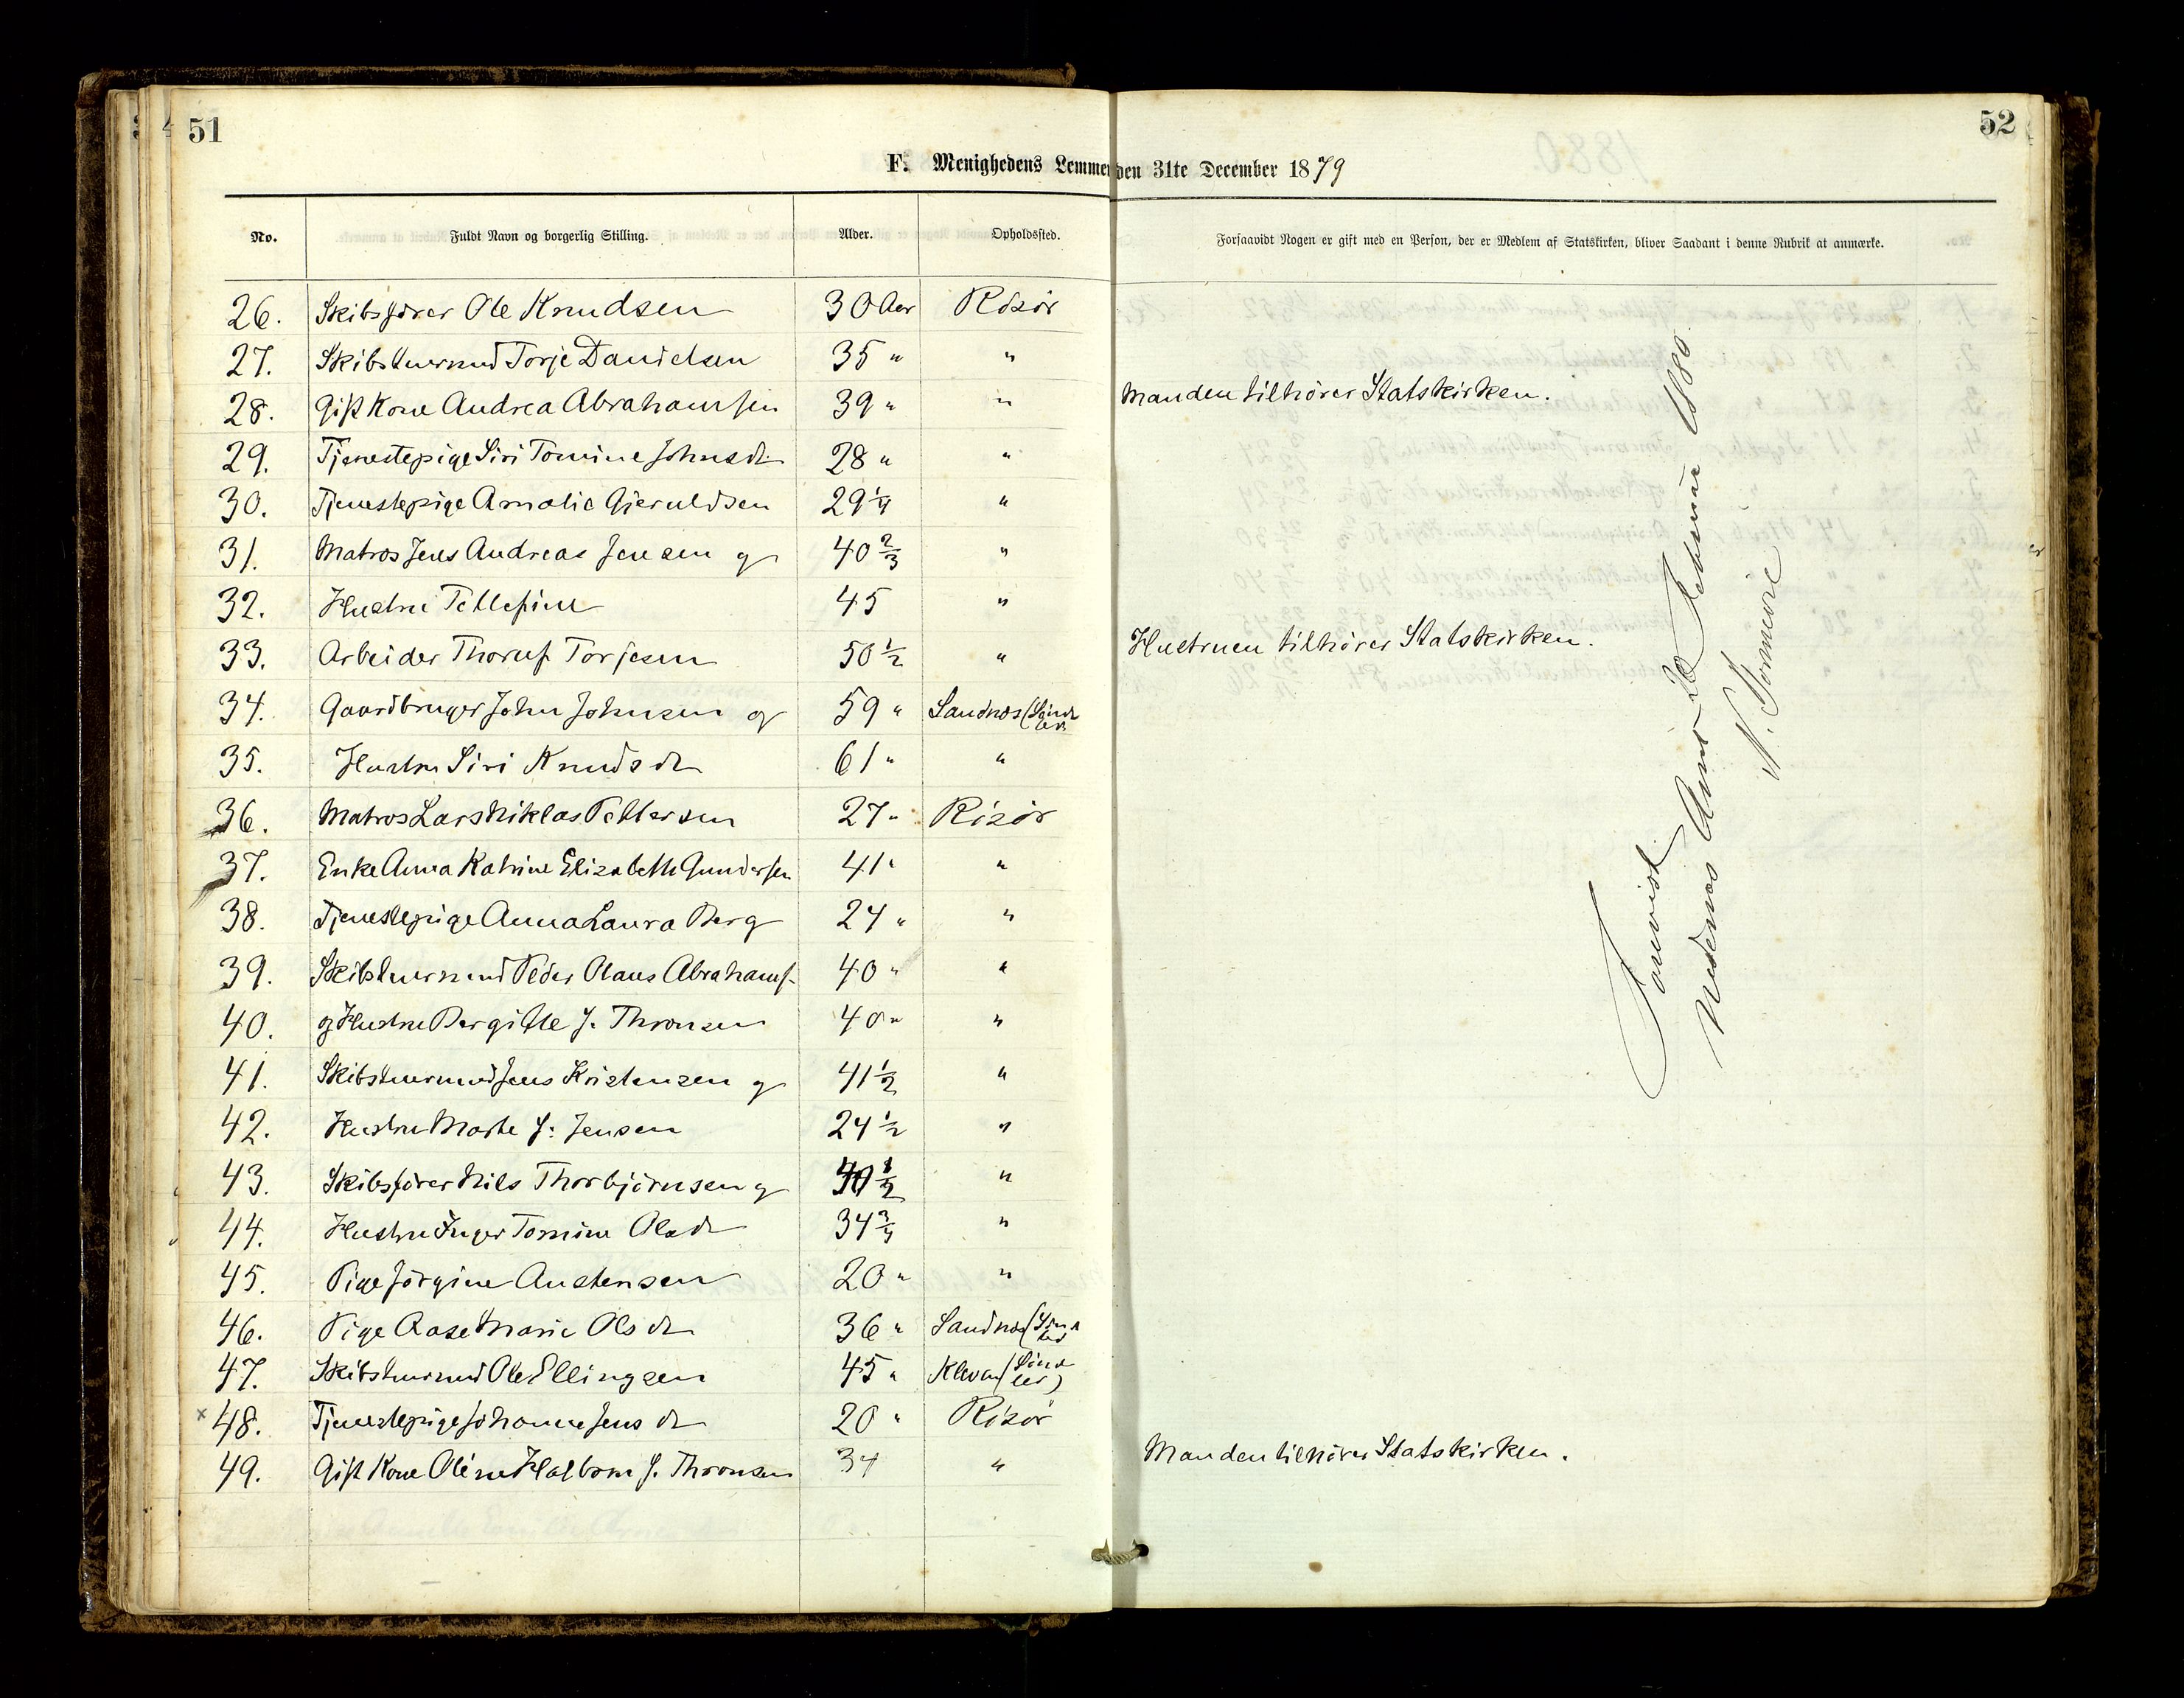 51
52
F. Menighedens Lemmer den 31te December 1879
No. Fuldt Navn og borgerlig Stilling. Alder. Opholdssted. Forsaavidt Nogen er gift med en Person, der er Medlem af Statskirken, bliver Saadant i denne Rubrik at anmærke.
26. Skibsfører Ole Knudsen 30 Aar Risør
27. Skibstuermand Torje Danielsen 35 " "
28. Gift Kone Andrea Abrahamsen 39 " " Manden tilhører Statskirken.
29. Tjenestepige Siri Tomine Johnsdr 28 " "
30. Tjenestepige Amalie Gjeruldsen 29 1/4 "
31. Matros Jens Andreas Jensen og 40 2/3 "
32. Hustru Tellefine 45 "
33. Arbeider Thoruf Torjesen 50 1/2 " Hustruen tilhører Statskirken.
34. Gaardbruger John Johnsen og 59 " Sandnes (Sönde
led)
35. Hustru Siri Knudsdr 61 " "
36. Matros Lars Niklas Pettersen 27 " Risør
37. Enke Anna Katrine Elizabeth Gundersen 41 " "
38. Tjenestepige Anna Laura Berg 24 " "
39. Skibstuermand Peder Olaus Abrahams. 40 " "
40. og Hustru Bergitte f. Thronsen 40 " "
41. Skibstuermand Jens Kristensen og 41 1/2 "
42. Hustru Marte f: Jensen 24 1/2 "
43. Skibsfører Nils Thorbjörnsen og 1/2 "
44. Hustru Inger Tomine Olsdr 34 3/4 "
45. Pige Jörgine Austensen 20 " "
46. Pige Aase Marie Olsdr 36 " Sandnes (Sön
led
47. Skibstuermand Ole Ellingsen 45 " Kleven (Sönd
led)
x 48. Tjenestepige Johanne Jensdr 20 " Risør
49. Gift Kone Oline Halborm f. Thronsen 34 " Manden tilhører Statskirken.
Forevist
Nedenæs Amt 20 Februar 1880
N.